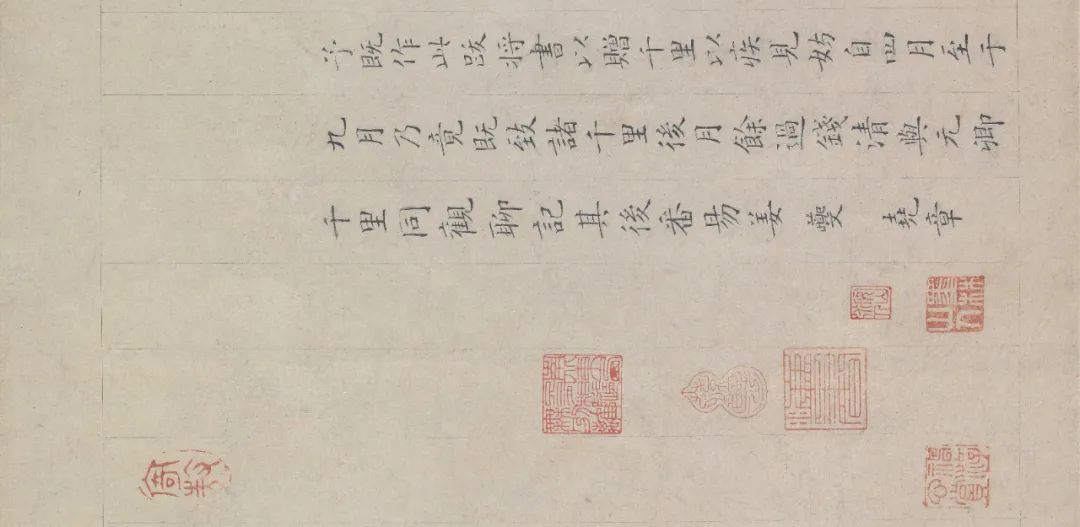 予既作此跋将書以贈千里以疾見妨自四月至于
九月乃竟既致諸千里後月餘過錢清與元卿
千里同觀聊記其後番昜姜夔 堯章